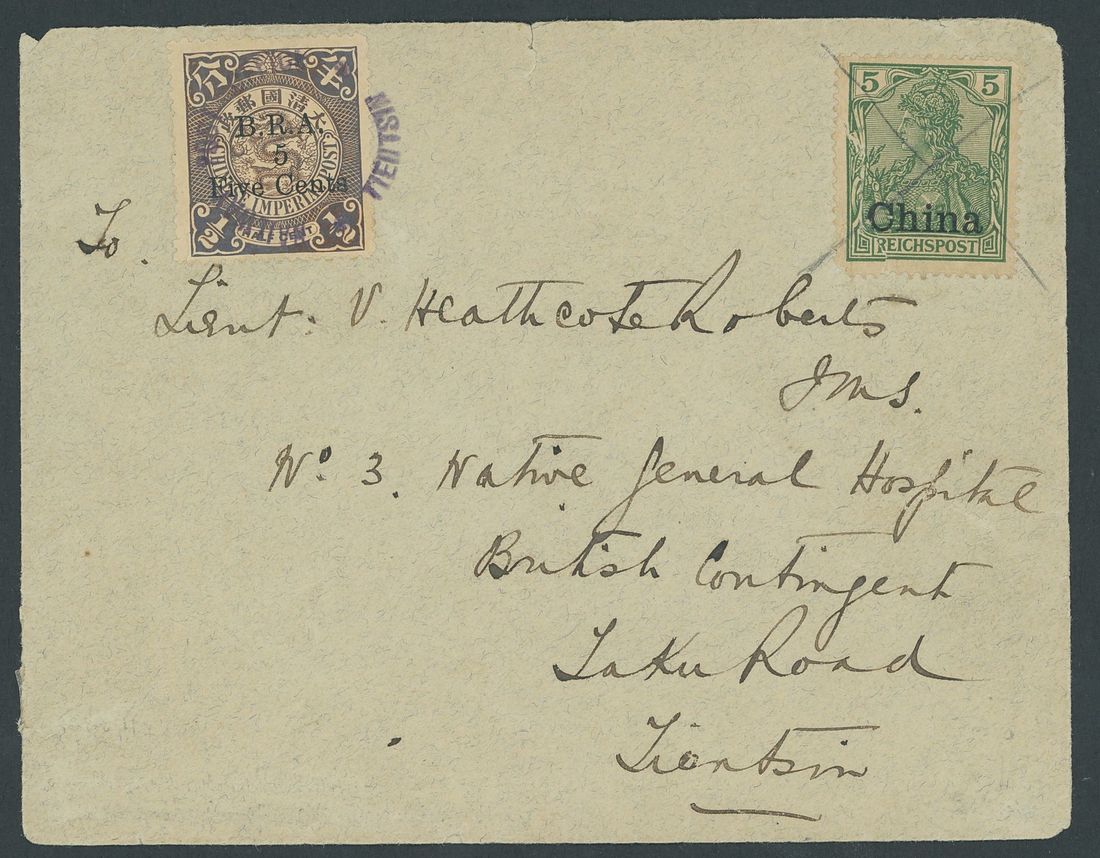 分 半
大清國郵政
B.R.A.
5
Five Cents
CHINESE IMPERIAL POST
1/2 HALF CENT 1/2
TIENTSIN
5 5
China
REICHSPOST
To.
Lieut. V. Heathcote Roberts
I M S.
No. 3. Native General Hospital
British Contingent
Taku Road
Tientsin